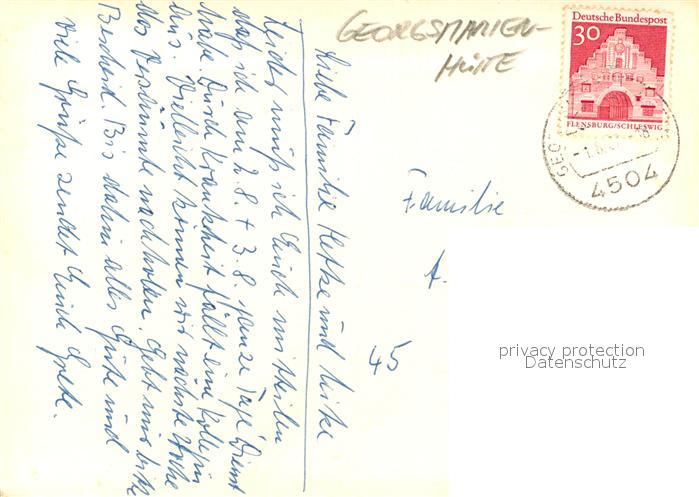 GEORGSMARIEN-
HÜTTE
Deutsche Bundespost
30
FLENSBURG/SCHLESWIG
4504
Liebe Familie Hetke und
Leider muß ich Euch mitteilen
daß ich am 2.8. + 3.8. ganze Tage Dienst
habe. Durch Krankheit fällt eine Kollegin
aus. Vielleicht können wir nächste Woche
das Versäumte nachholen. Gebt mir bitte
Bescheid. Bis dahin alles Gute und
viele Grüße sendet Euch Grete.
Familie
45
privacy protection
Datenschutz